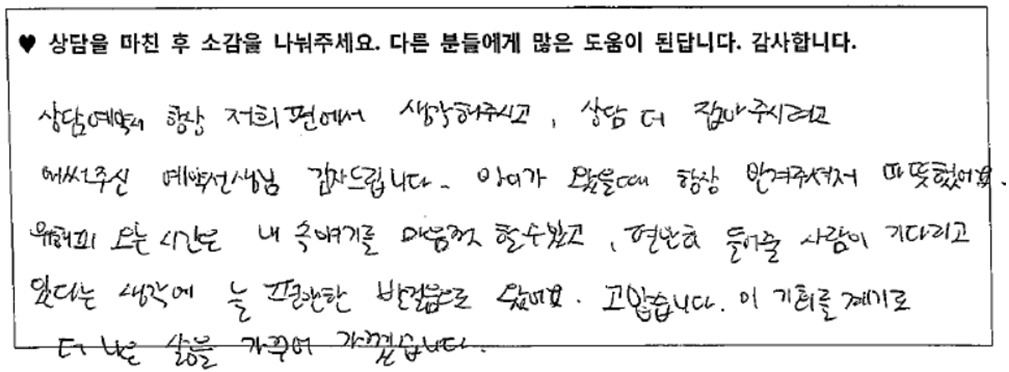 ♥ 상담을 마친 후 소감을 나눠주세요. 다른 분들에게 많은 도움이 된답니다. 감사합니다.
상담예약시 항상 저희 편에서 생각해주시고, 상담 더 잡아주시려고
애써주신 예약선생님 감사드립니다. 아이가 왔을때 항상 반겨주셔서 따뜻했어요.
오는 시간은 내 속얘기를 마음껏 할수있고, 편안히 들어줄 사람이 기다리고
있다는 생각에 늘 편안한 발걸음으로 왔어요. 고맙습니다. 이 기회를 계기로
더 나은 삶을 가꾸어 가겠습니다.